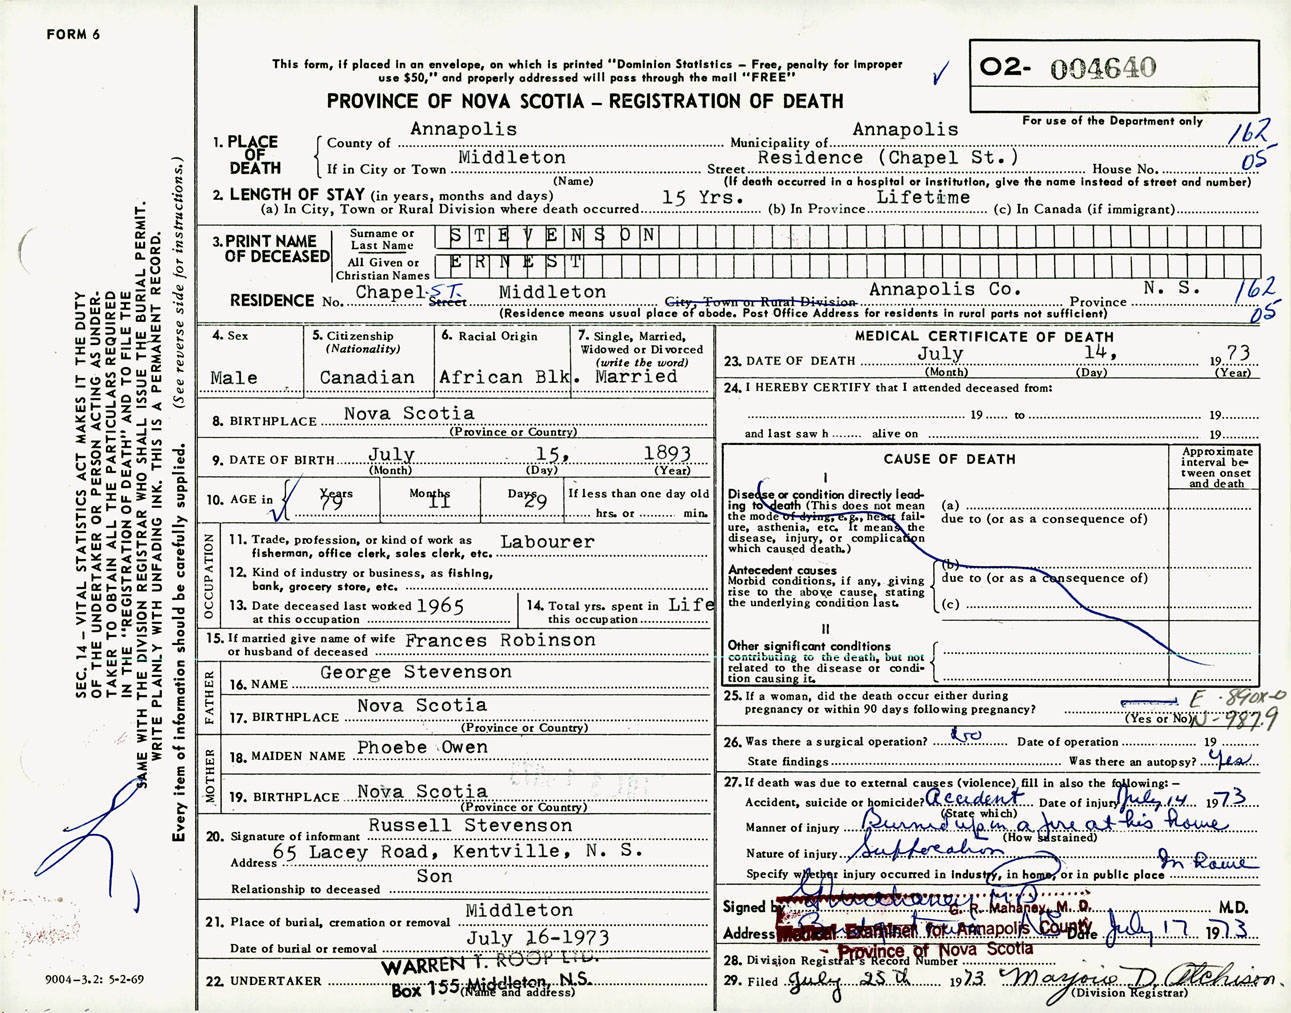 FORM 6
This form, if placed in an envelope, on which is printed "Dominion Statistics – Free, penalty for improper
use $50," and properly addressed will pass through the mail "FREE"
PROVINCE OF NOVA SCOTIA – REGISTRATION OF DEATH
O2- 004640
For use of the Department only
162
05
1. PLACE OF DEATH
County of Annapolis Municipality of Annapolis
If in City or Town Middleton Street Residence (Chapel St.) House No.
(Name) (If death occurred in a hospital or institution, give the name instead of street and number)
2. LENGTH OF STAY (in years, months and days)
(a) In City, Town or Rural Division where death occurred 15 Yrs. (b) In Province Lifetime (c) In Canada (if immigrant)
3. PRINT NAME OF DECEASED
Surname or Last Name STEVENSON
All Given or Christian Names ERNEST
RESIDENCE No. Chapel Street ST. Middleton City, Town or Rural Division Annapolis Co. Province N. S. 162
(Residence means usual place of abode. Post Office Address for residents in rural parts not sufficient) 05
4. Sex
Male
5. Citizenship
(Nationality)
Canadian
6. Racial Origin
African Blk.
7. Single, Married,
Widowed or Divorced
(write the word)
Married
8. BIRTHPLACE Nova Scotia
(Province or Country)
9. DATE OF BIRTH July 15, 1893
(Month) (Day) (Year)
10. AGE in Years 79 Months 11 Days 29 If less than one day old
hrs. or min.
OCCUPATION
11. Trade, profession, or kind of work as
fisherman, office clerk, sales clerk, etc. Labourer
12. Kind of industry or business, as fishing,
bank, grocery store, etc.
13. Date deceased last worked
at this occupation 1965
14. Total yrs. spent in
this occupation Life
15. If married give name of wife
or husband of deceased Frances Robinson
FATHER
16. NAME George Stevenson
17. BIRTHPLACE Nova Scotia
(Province or Country)
MOTHER
18. MAIDEN NAME Phoebe Owen
19. BIRTHPLACE Nova Scotia
(Province or Country)
20. Signature of informant Russell Stevenson
Address 65 Lacey Road, Kentville, N. S.
Relationship to deceased Son
21. Place of burial, cremation or removal Middleton
Date of burial or removal July 16-1973
22. UNDERTAKER WARREN T. ROOP LTD.
Box 155 Middleton, N.S.
(Name and address)
MEDICAL CERTIFICATE OF DEATH
23. DATE OF DEATH July 14, 1973
(Month) (Day) (Year)
24. I HEREBY CERTIFY that I attended deceased from:
19 to 19
and last saw h alive on 19
CAUSE OF DEATH
Approximate
interval be-
tween onset
and death
I
Disease or condition directly lead-
ing to death (This does not mean
the mode of dying, e.g., heart fail-
ure, asthenia, etc. It means the
disease, injury, or complication
which caused death.)
(a)
due to (or as a consequence of)
Antecedent causes
Morbid conditions, if any, giving
rise to the above cause, stating
the underlying condition last.
(b)
due to (or as a consequence of)
(c)
II
Other significant conditions
contributing to the death, but not
related to the disease or condi-
tion causing it.
25. If a woman, did the death occur either during
pregnancy or within 90 days following pregnancy?
(Yes or No)
E-890X-0
N-987.9
26. Was there a surgical operation? No Date of operation 19
State findings Was there an autopsy? Yes
27. If death was due to external causes (violence), fill in also the following: –
Accident, suicide or homicide? Accident Date of injury July 14 1973
(State which)
Manner of injury Burned up in a fire at his home
(How sustained)
Nature of injury Suffocation
Specify whether injury occurred in industry, in home, or in public place In home
Signed by G. R. Mahaney, M. D. M.D.
Address Medical Examiner for Annapolis County Date July 17 1973
Province of Nova Scotia
28. Division Registrar's Record Number
29. Filed July 25th 1973 Marjorie D. Atchison.
(Division Registrar)
SEC. 14 – VITAL STATISTICS ACT MAKES IT THE DUTY
OF THE UNDERTAKER OR PERSON ACTING AS UNDER-
TAKER TO OBTAIN ALL THE PARTICULARS REQUIRED
IN THE "REGISTRATION OF DEATH" AND TO FILE THE
SAME WITH THE DIVISION REGISTRAR WHO SHALL ISSUE THE BURIAL PERMIT.
WRITE PLAINLY WITH UNFADING INK. THIS IS A PERMANENT RECORD.
Every item of information should be carefully supplied. (See reverse side for instructions.)
9004–3.2: 5-2-69